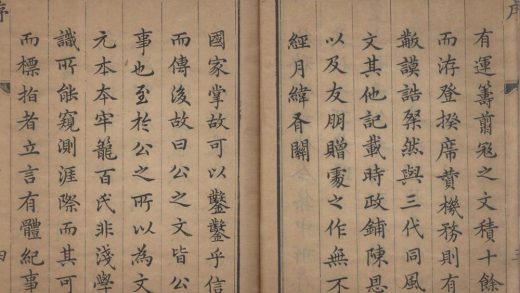 序
有運籌翦寇之文積十餘
而洊登揆席機務則有
謨誥粲然與三代同風
文其他記載時政鋪陳恩
以及友朋贈處之作無不
經月緯胥關
國家掌故可以鑿鑿乎信
而傳後故曰公之文皆公
事也至於公之所以為文
元本本牢籠百氏非淺學
識所能窺測涯際而其可
而標指者立言有體紀事
序
四